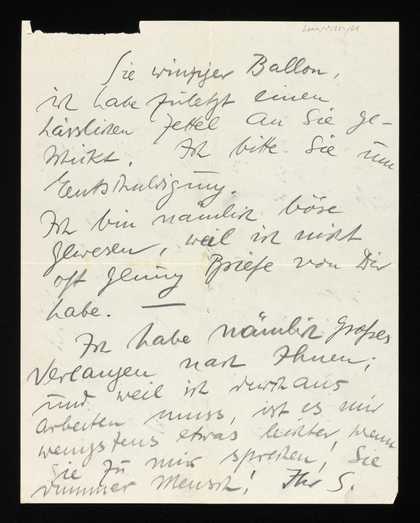 Sie winziger Ballon,
ich habe zuletzt einen
hässlichen Zettel an Sie ge-
schickt. Ich bitte Sie um
Entschuldigung.
Ich bin nämlich böse
gewesen, weil ich nicht
oft genug Briefe von Dir
habe. —
Ich habe nämlich großes
Verlangen nach Ihnen;
und weil ich durchaus
arbeiten muss, ist es mir
wenigstens etwas leichter, wenn
Sie zu mir sprechen, Sie
dummer Mensch! Ihr S.